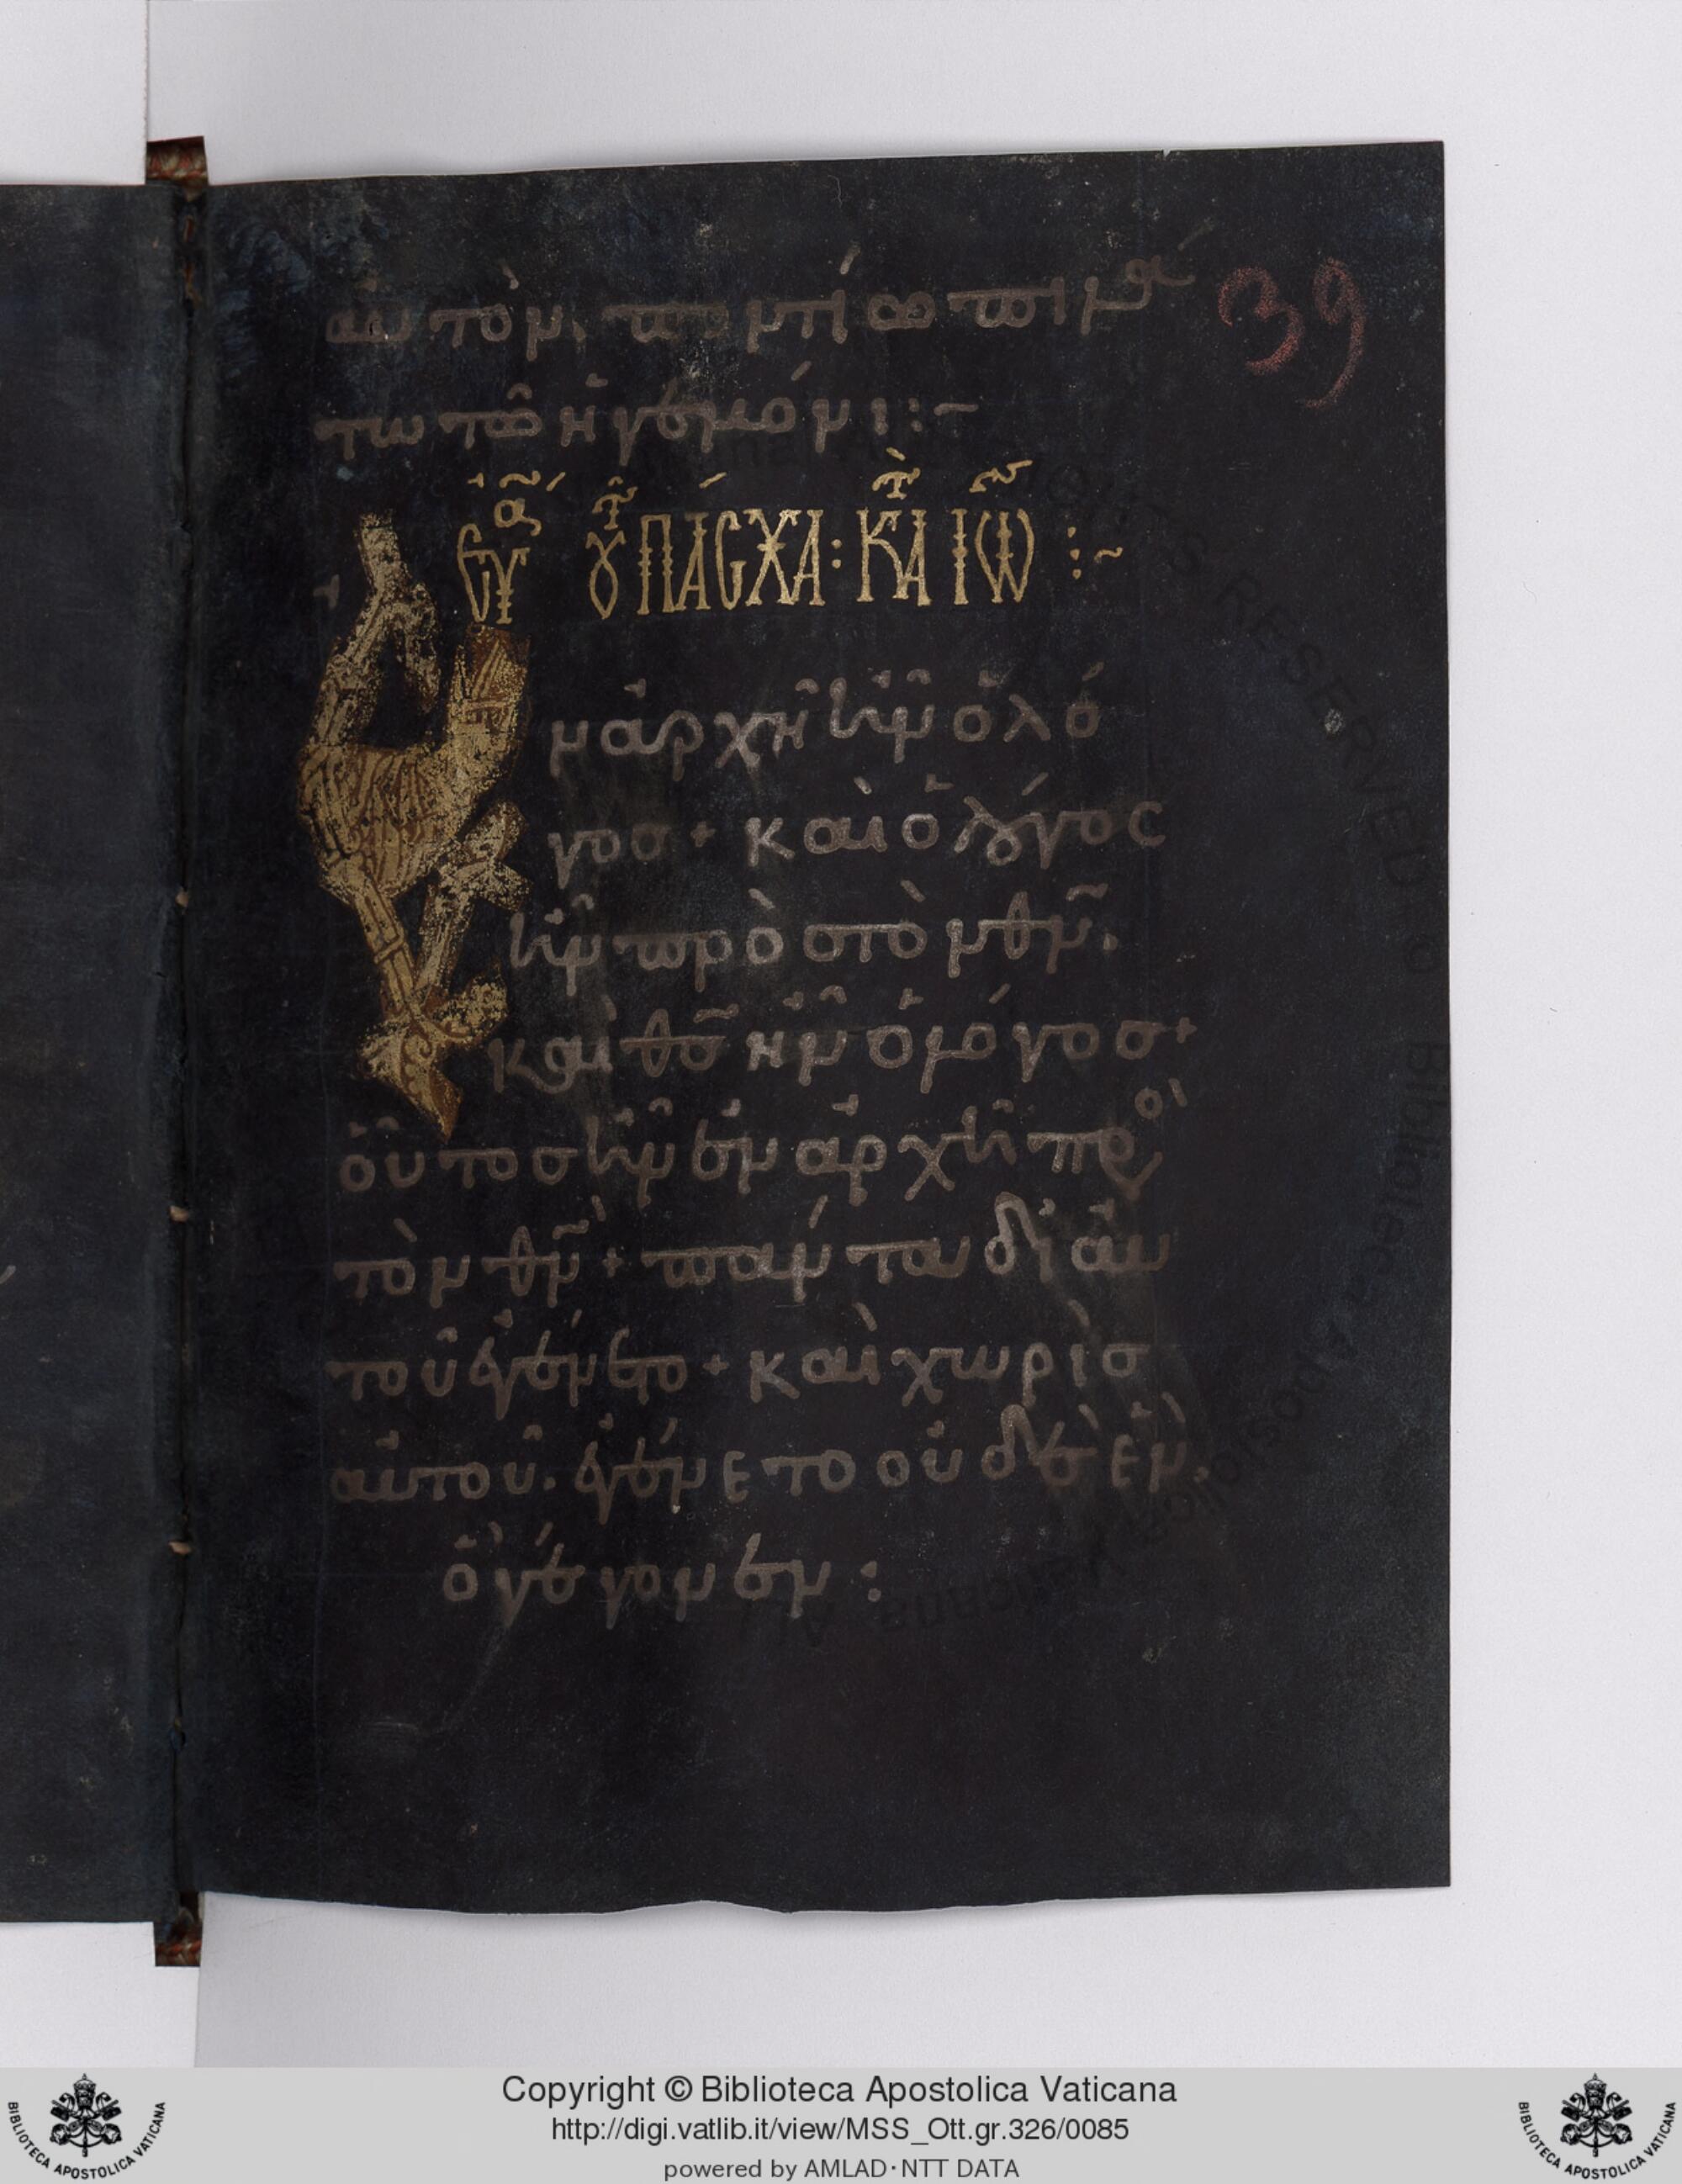 αὐτὸν. ποντίω πιλά
τω τῶ ἡγεμόνι :-
39
εὐα τοῦ ΠΆΣΧΑ : Κατὰ ἸΩ :~
ν ἀρχῆ ἦν ὁ λό
γοσ + καὶ ὁ λόγος
ἦν πρὸσ τὸν θν.
καὶ θσ ἦν ὁ λόγοσ +
οὗτοσ ἦν ἐν ἀρχῆ πρ
τὸν θν + πάντα δι' αὐ
τοῦ ἐγένετο + καὶ χωρὶσ
αὐτοῦ. ἐγένετο οὐδὲ ἕν.
ὃ γέγονεν :
Copyright © Biblioteca Apostolica Vaticana
http://digi.vatlib.it/view/MSS_Ott.gr.326/0085
powered by AMLAD·NTT DATA
BIBLIOTECA APOSTOLICA VATICANA
BIBLIOTECA APOSTOLICA VATICANA